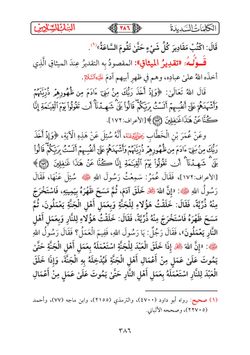 الكلمات السديدة
٣٨٦
قال: اكتب مقادير كل شيء حتى تقوم الساعة»(١).
قوله: «تقدير الميثاق»: المقصود به التقدير عند الميثاق الذي
أخذه الله على عباده، وهم في ظهر أبيهم آدم
قال الله تعالى: ﴿وَإِذْ أَخَذَ رَبُّكَ مِنْ بَنِي آدَمَ مِنْ ظُهُورِهِمْ ذُرِّيَّتَهُمْ
وَأَشْهَدَهُمْ عَلَى أَنْفُسِهِمْ أَلَسْتُ بِرَبِّكُمْ قَالُوا بَلَى شَهِدْنَا أَنْ تَقُولُوا يَوْمَ الْقِيَامَةِ إِنَّا
كُنَّا عَنْ هَذَا غَافِلِينَ﴾ [الأعراف: ١٧٢].
وعن عمر بن الخطاب أنه سئل عن هذه الآية، ﴿وَإِذْ أَخَذَ
رَبُّكَ مِنْ بَنِي آدَمَ مِنْ ظُهُورِهِمْ ذُرِّيَّتَهُمْ وَأَشْهَدَهُمْ عَلَى أَنْفُسِهِمْ أَلَسْتُ بِرَبِّكُمْ قَالُوا
بَلَى شَهِدْنَا أَنْ تَقُولُوا يَوْمَ الْقِيَامَةِ إِنَّا كُنَّا عَنْ هَذَا غَافِلِينَ﴾
[الأعراف: ١٧٢]، فقال عمر: سمعت رسول الله ﷺ سئل عنها، فقال
رسول الله ﷺ: «إن الله خلق آدم، ثم مسح ظهره بيمينه، فاستخرج
منه ذرية، فقال: خلقت هؤلاء للجنة وبعمل أهل الجنة يعملون، ثم
مسح ظهره فاستخرج منه ذرية، فقال: خلقت هؤلاء للنار وبعمل أهل
النار يعملون»، فقال رجل: يا رسول الله، ففيم العمل؟ فقال رسول الله
ﷺ: «إن الله إذا خلق العبد للجنة استعمله بعمل أهل الجنة حتى
يموت على عمل من أعمال أهل الجنة فيدخله به الجنة، وإذا خلق
العبد للنار استعمله بعمل أهل النار حتى يموت على عمل من أعمال
(١) صحيح: رواه أبو داود (٤٧٠٠)، والترمذي (٢١٥٥)، وابن ماجه (٧٧)، وأحمد
(٢٢٧٠٥)، وصححه الألباني.
٣٨٦